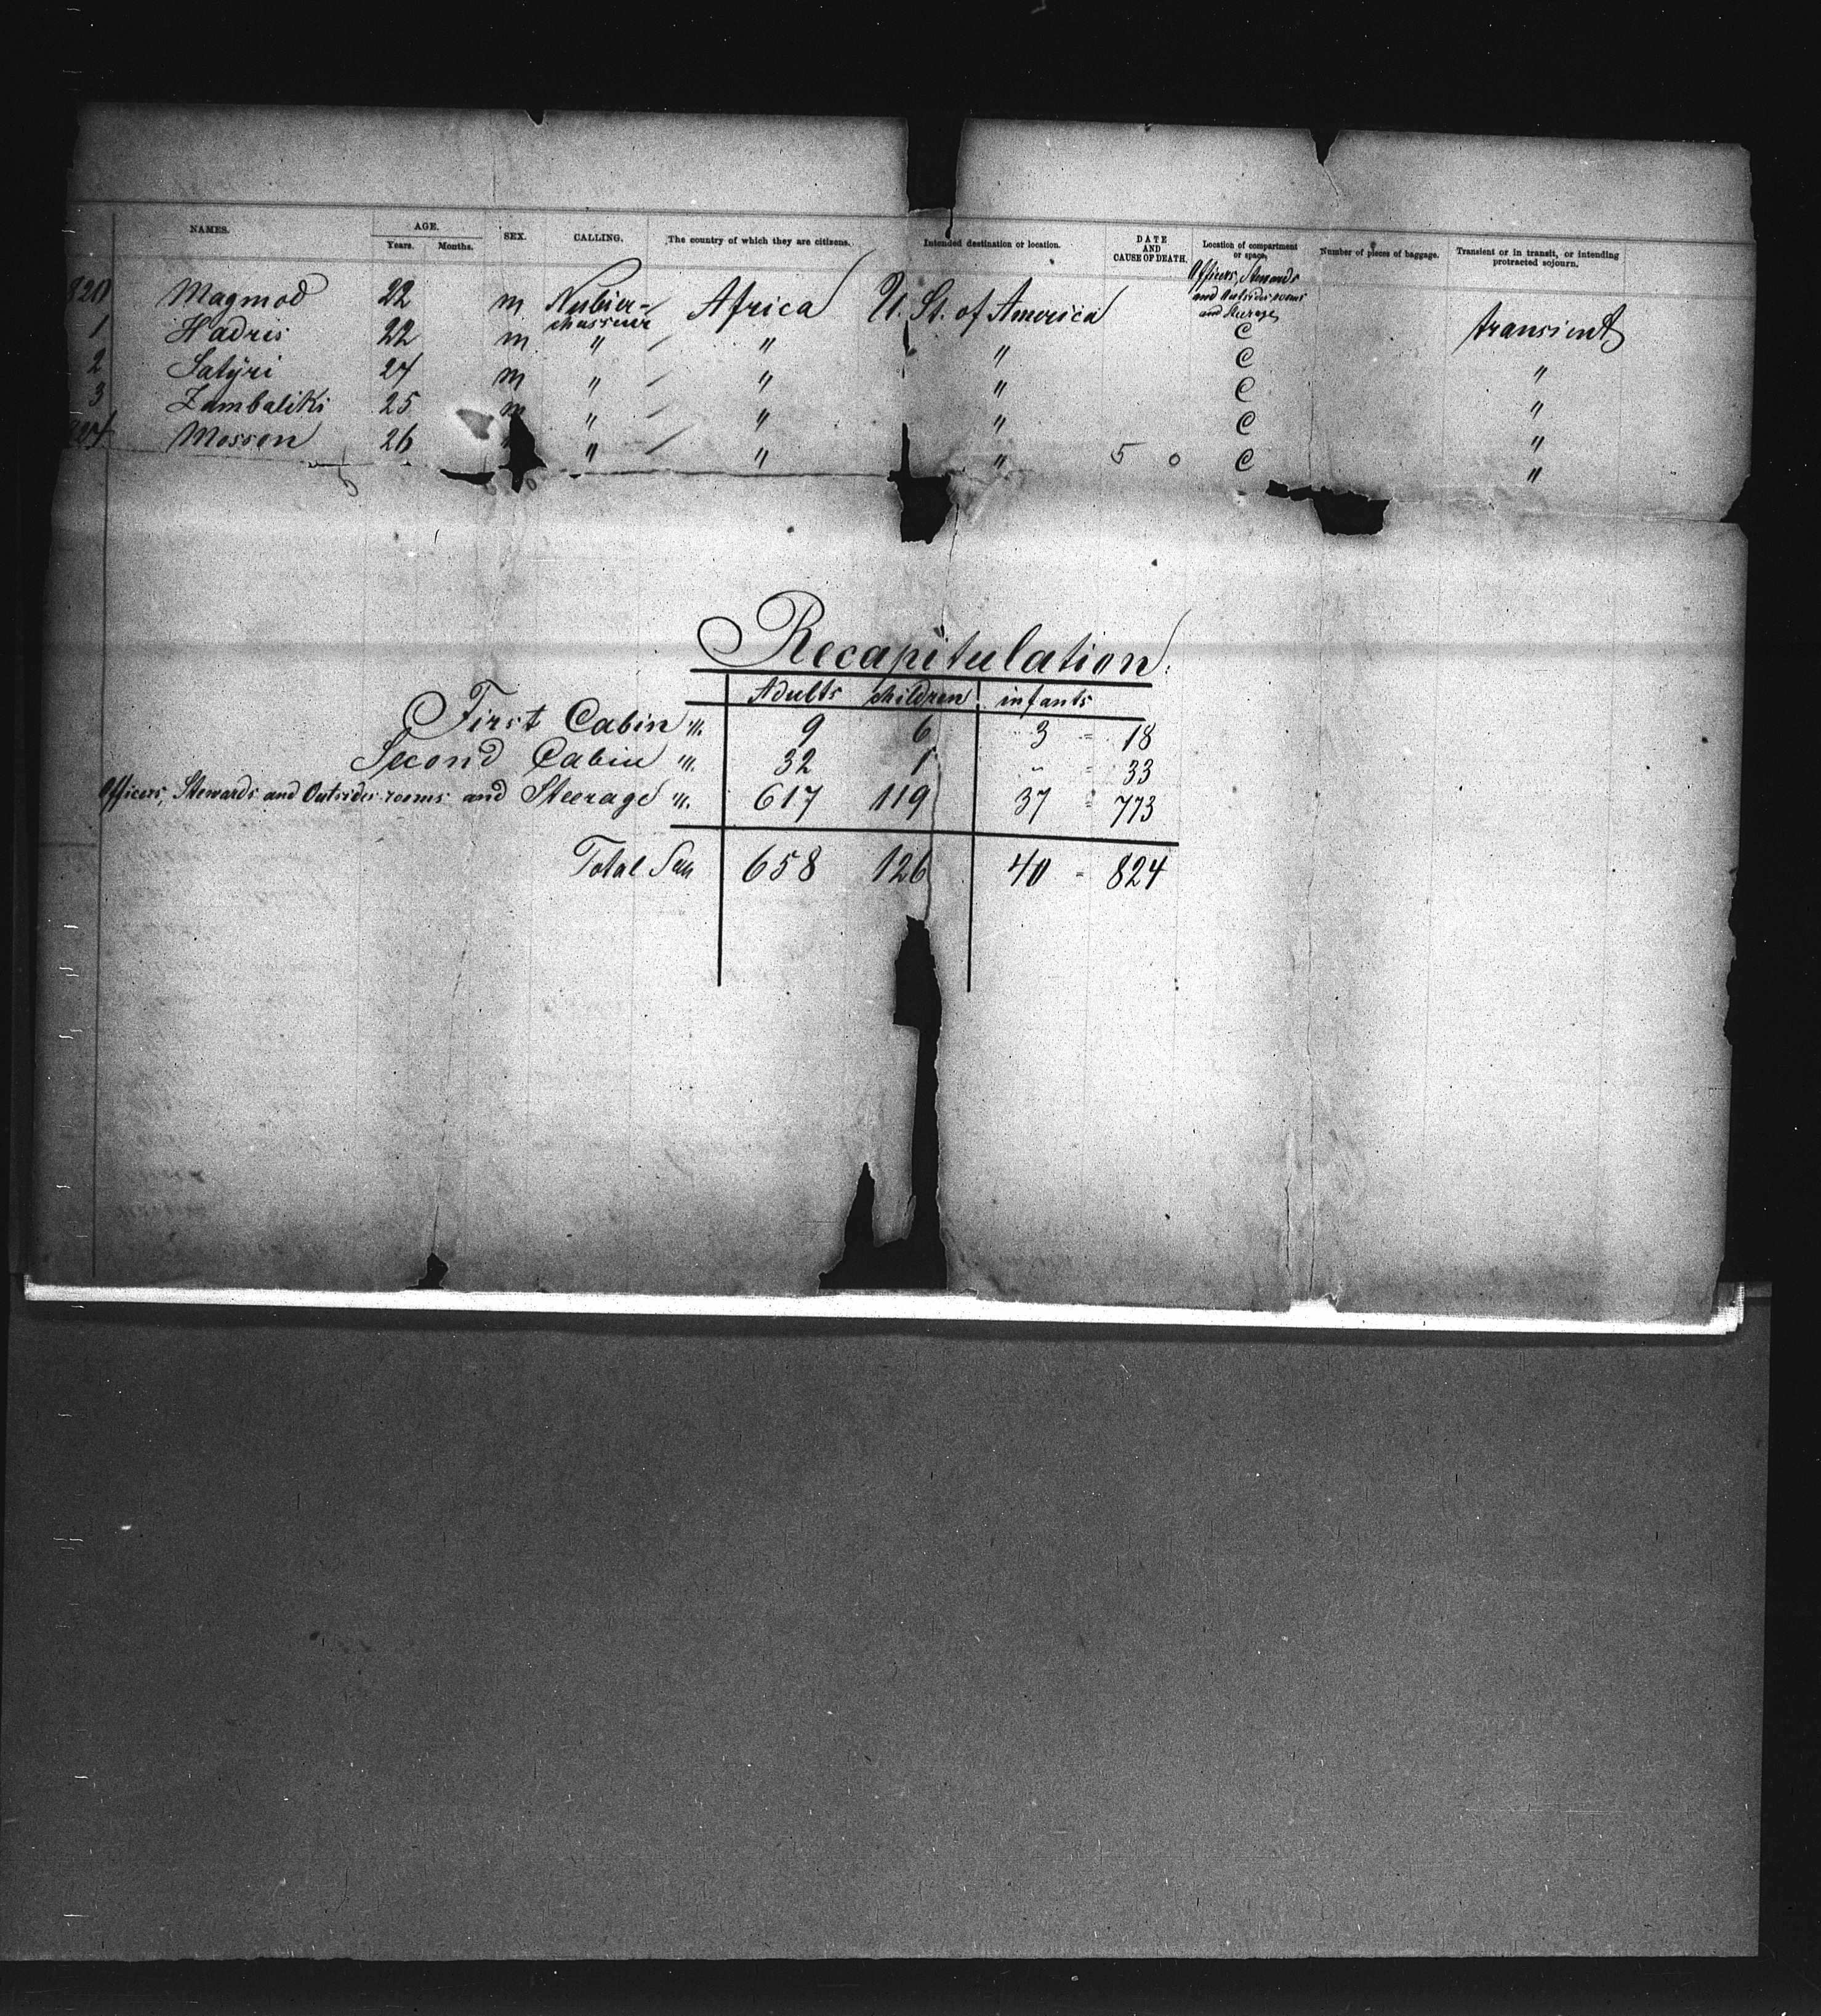 NAMES. AGE. SEX. CALLING. The country of which they are citizens. Intended destination or location. DATE AND CAUSE OF DEATH. Location of compartment or space. Number of pieces of baggage. Transient or in transit, or intending protracted sojourn.
Years. Months.
Officers, Stewards and Outsides rooms and Steerage
820 Magmod 22 m Nubier- Africa U. St. of America C transient
1 Hadris 22 m " " " C "
2 Satÿri 24 m " " " C "
3 Zambaliki 25 m " " " C "
824 Mosson 26 " " " " 5 0 C "
Recapitulation.
Adults children infants
First Cabin ". 9 6 3 = 18
Second Cabin ". 32 1 - = 33
Officers, Stewards and Outsides rooms and Steerage ". 617 119 37 = 773
Total 658 126 40 = 824